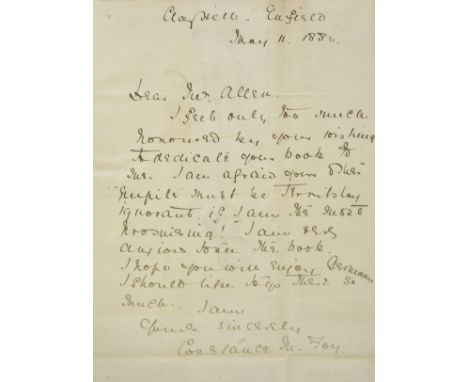 Enfield
May 11. 188
Dear Mr. Allen.
I feel only too much
honoured by your wishing
to dedicate your book to
me. I am afraid your other
pupils must be terribly
ignorant if I am the most
promising! I am very
anxious to see the book.
I hope you will enjoy Germany
I should like to go there so
much. I am
Yours sincerely
Constance M. Foy.